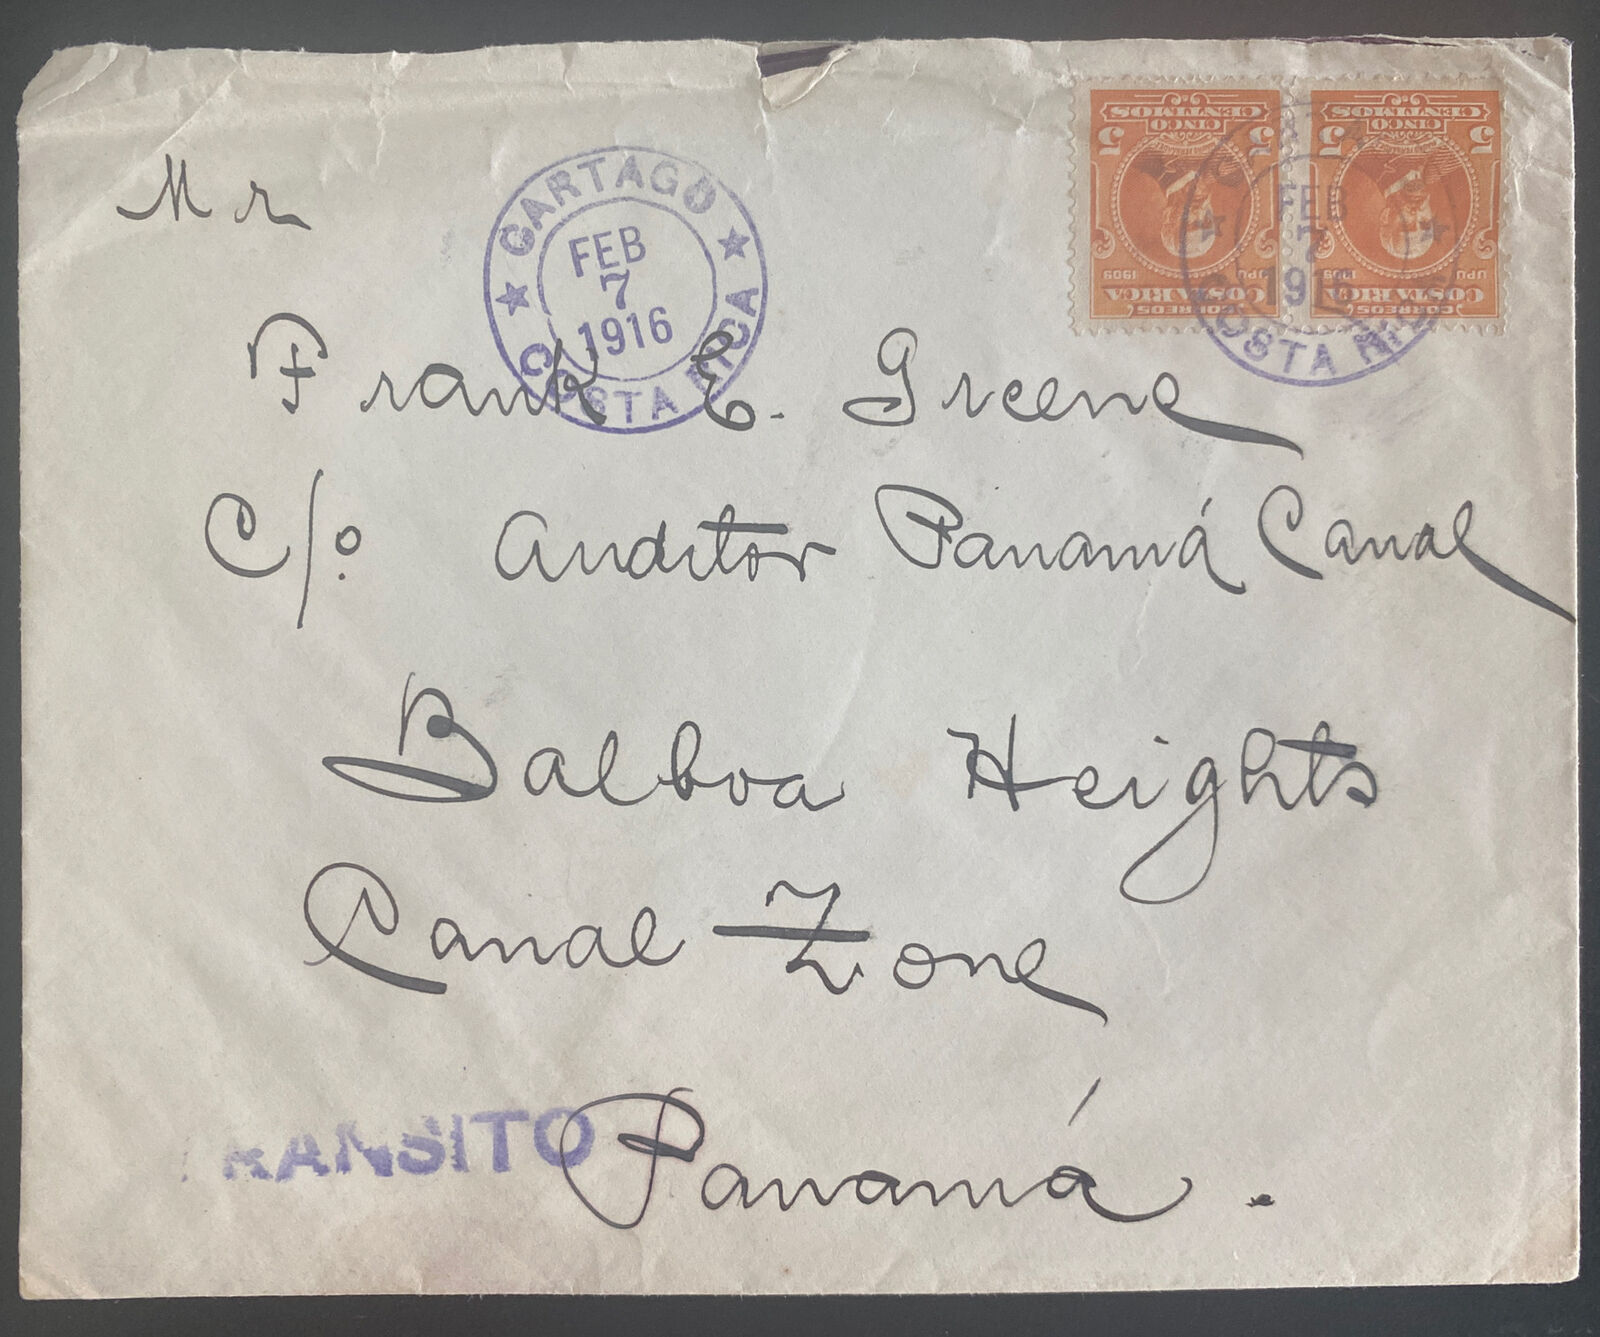 Mr
Frank E. Greene
C/o. Auditor Panamá Canal
Balboa Heights
Canal Zone
Panamá.
CARTAGO
FEB
7
1916
COSTA RICA
TRANSITO
FEB
7
1916
COSTA RICA
CORREOS
COSTA RICA
UPU 1909
5 CINCO 5
CENTIMOS
CORREOS
COSTA RICA
UPU 1909
5 CINCO 5
CENTIMOS